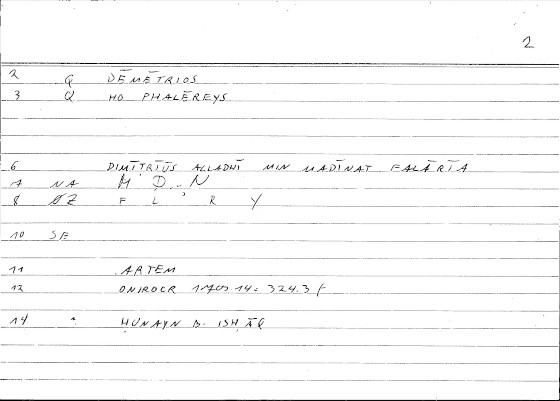 2
2 Q DĒMĒTRIOS
3 Q HO PHALĒREYS
6 DIMĪTRĪŪS ALLADHĪ MIN MADĪNAT FALĀRĪA
7 NA M D . N
8 ØZ F L R Y
10 SE
11 ARTEM
12 ONIROCR 14 = 324.3 f
14 " ḤUNAYN B. ISḤĀQ